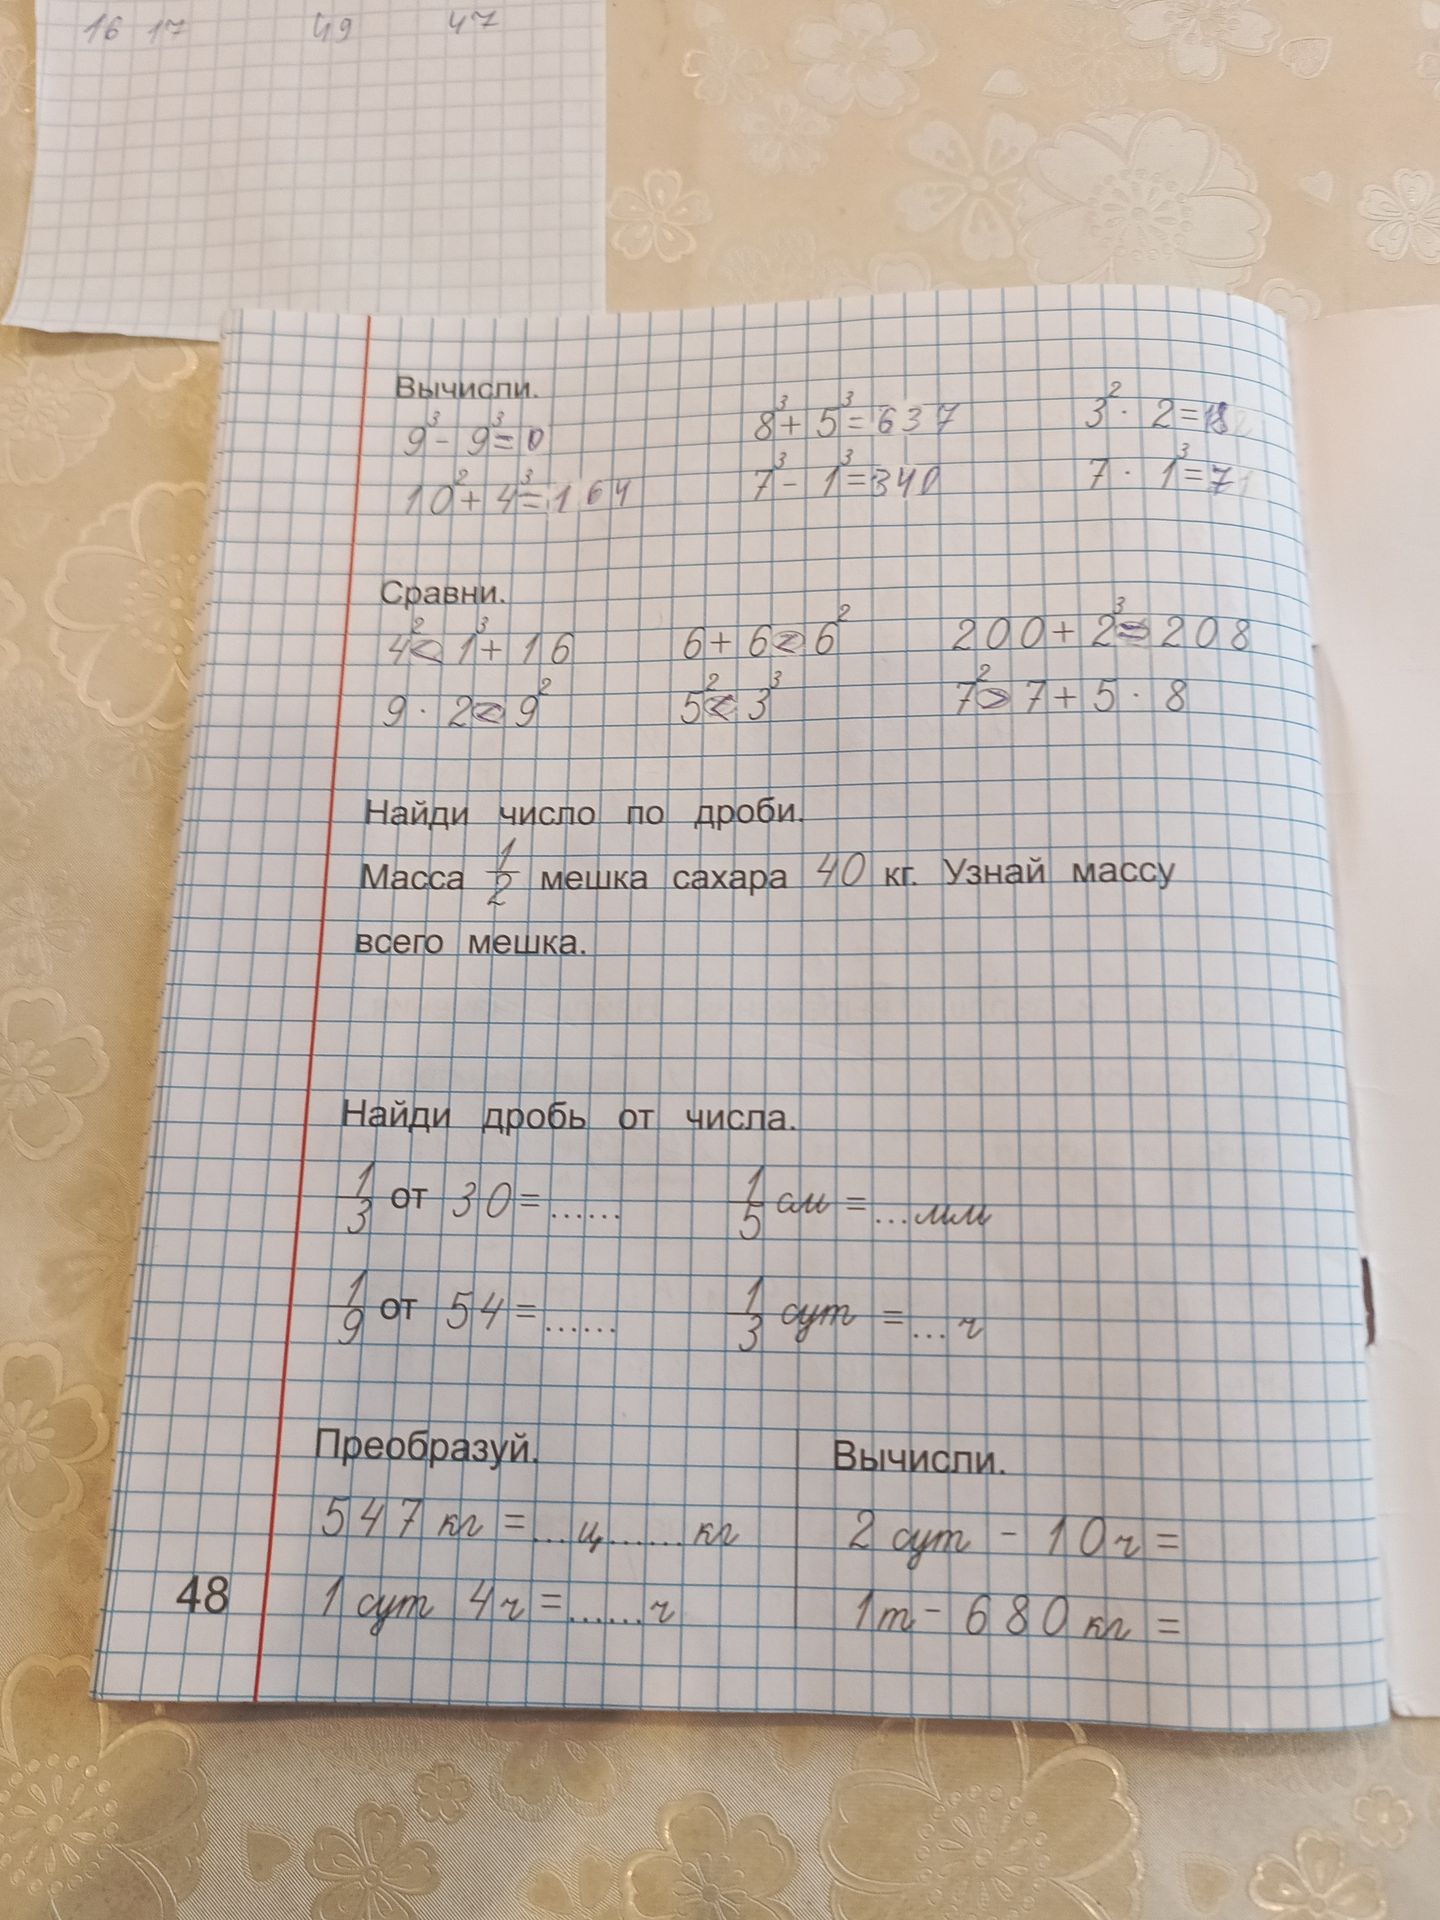 16 17 49 47
Вычисли.
9³ - 9³ = 0 8³ + 5³ = 637 3² · 2 = 18
10² + 4³ = 164 7³ - 1³ = 340 7 · 1³ = 7
Сравни.
4² < 1³ + 16 6 + 6 < 6² 200 + 2³ = 208
9 · 2 < 9² 5² < 3³ 7² > 7 + 5 · 8
Найди число по дроби.
Масса 1/2 мешка сахара 40 кг. Узнай массу
всего мешка.
Найди дробь от числа.
1/3 от 30 = ...... 1/5 см = ... мм
1/9 от 54 = ...... 1/3 сут = ... ч
Преобразуй. Вычисли.
547 кг = ... ц ...... кг 2 сут - 10 ч =
48 1 сут 4 ч = ...... ч 1 т - 680 кг =